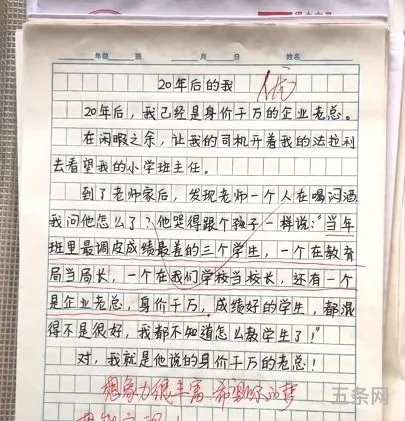 年级 班 月 日 姓名
20年后的我
优
20年后,我已经是身价千万的企业老总。
在闲暇之余,让我的司机开着我的法拉利
去看望我的小学班主任。
到了老师家后,发现老师一个人在喝闷酒
我问他怎么了?他哭得跟个孩子一样说:“当年
班里最调皮成绩最差的三个学生,一个在教育
局当局长,一个在我们学校当校长,还有一个
是企业老总,身价千万,成绩好的学生,都混
得不是很好,我都不知道怎么教学生了!”
对,我就是他说的身价千万的老总!
想象力很丰富,希望你的梦
五条网